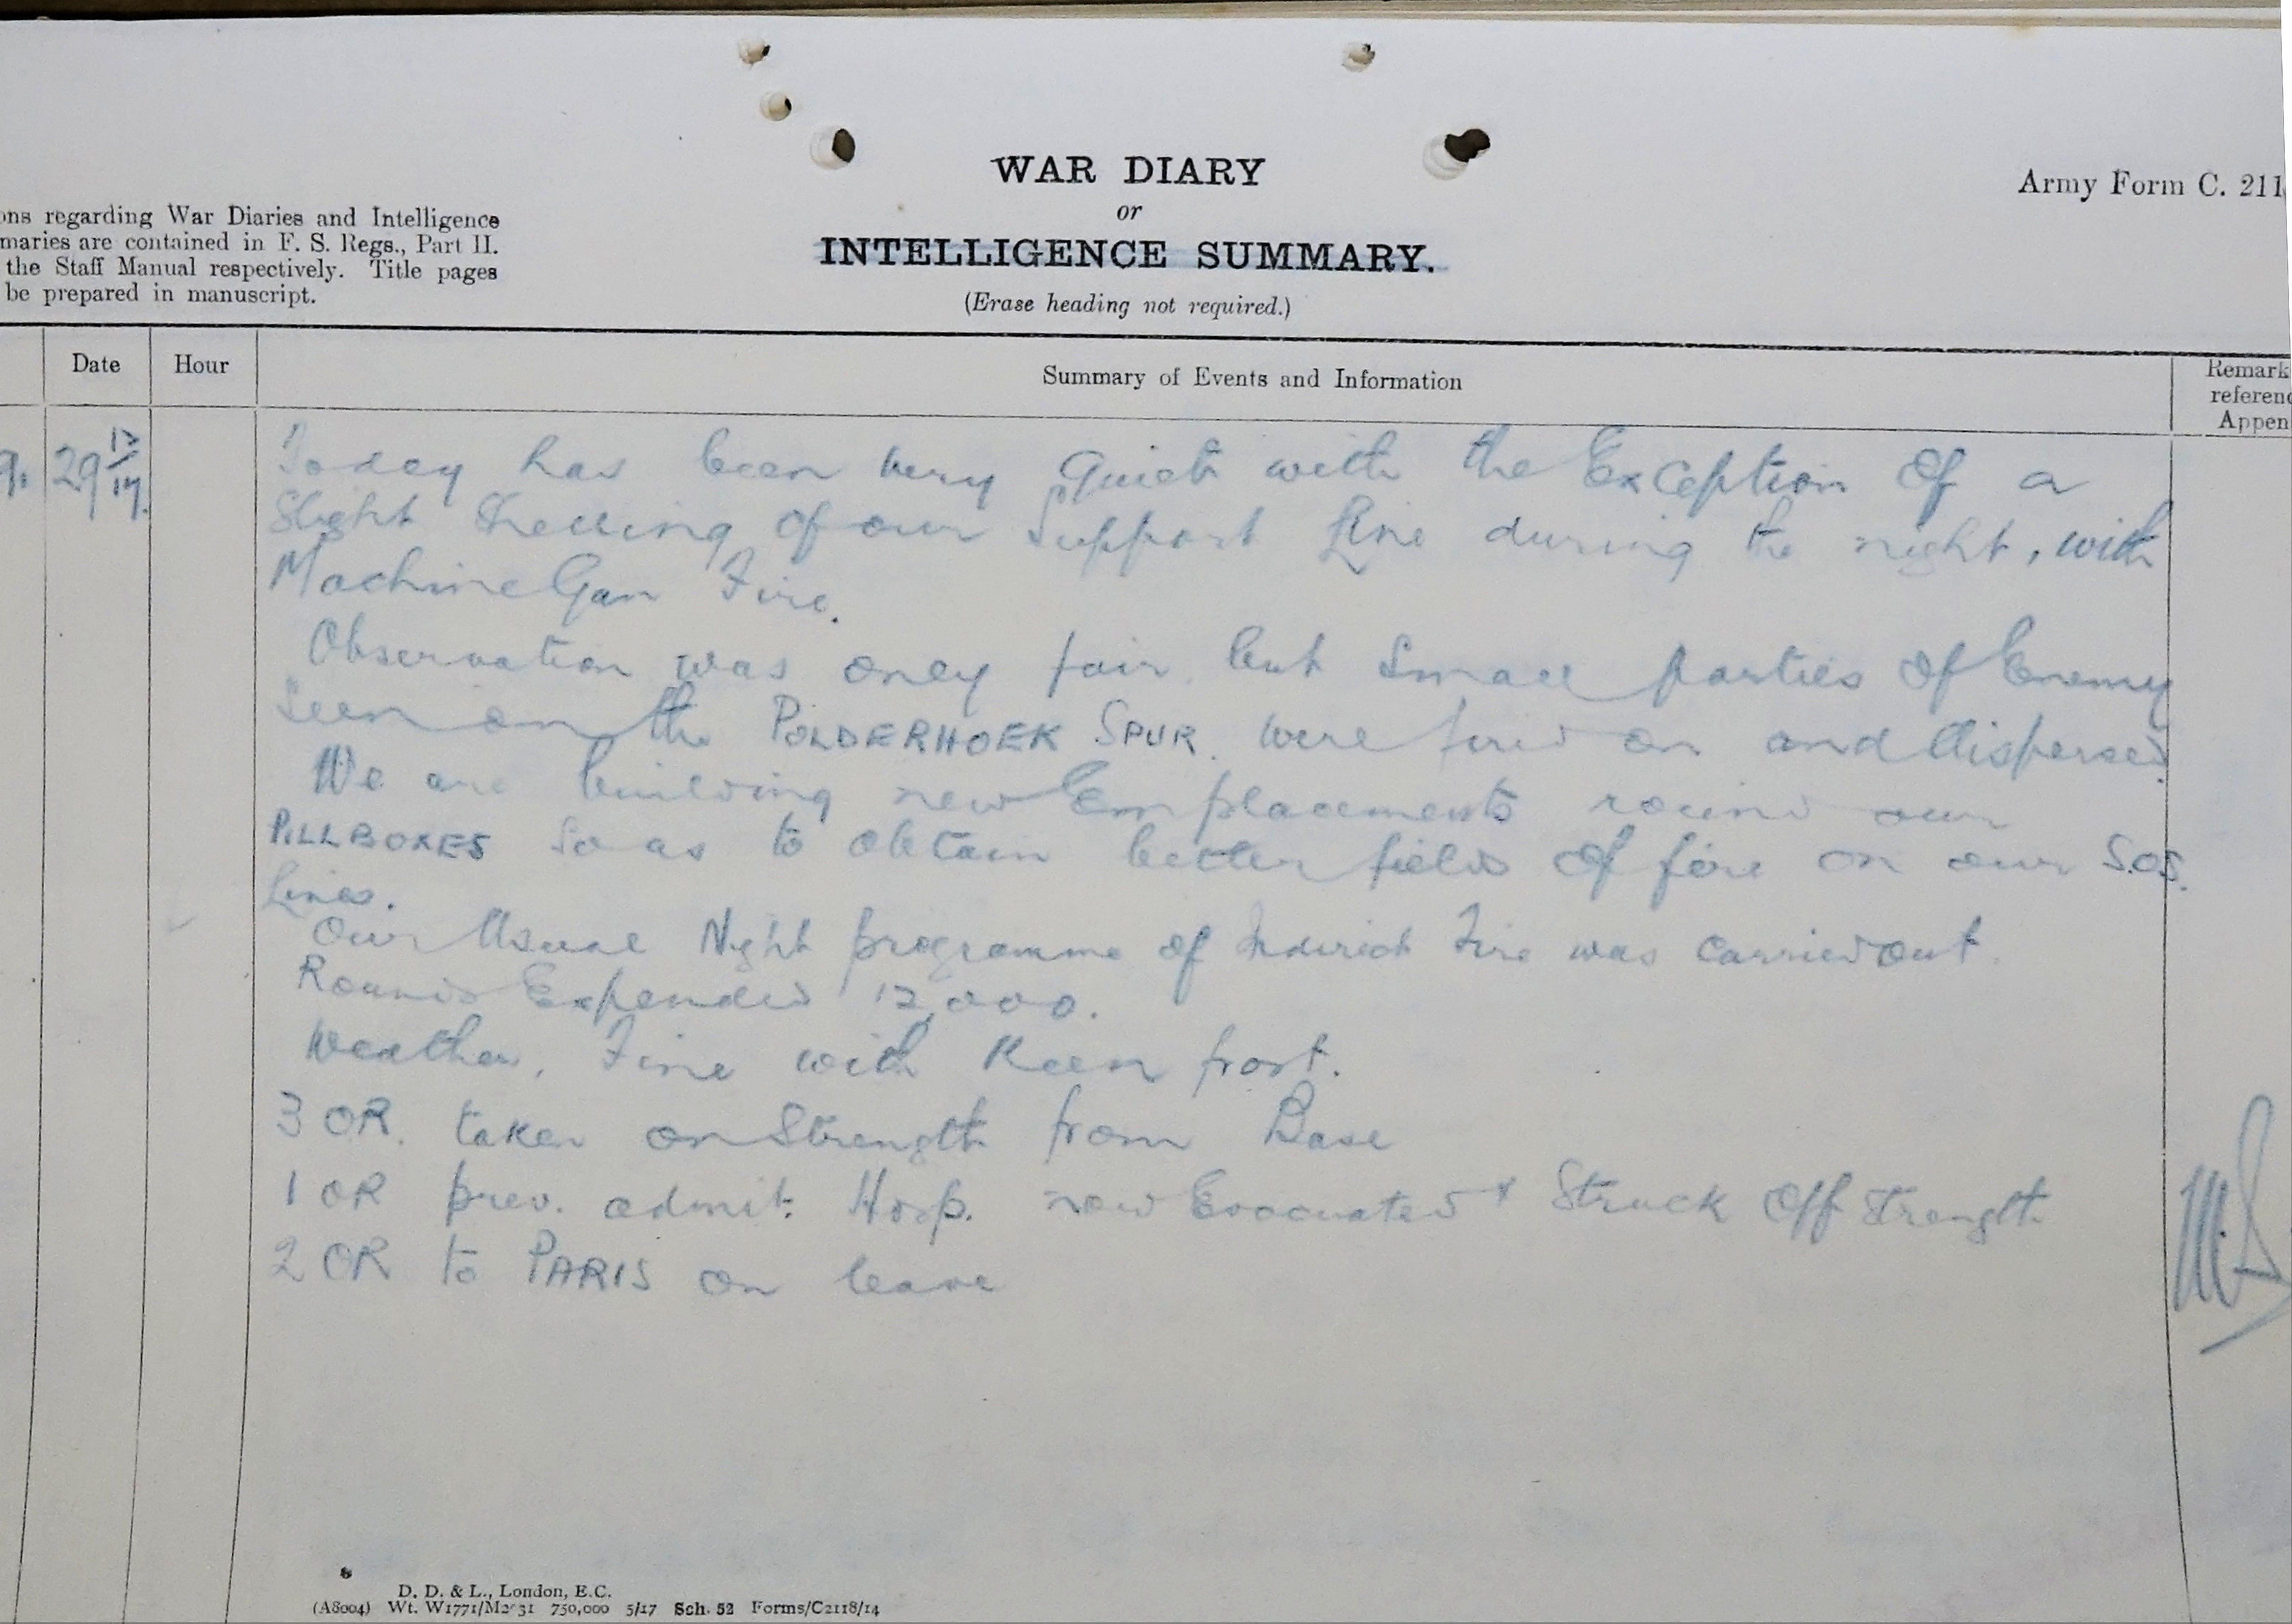 WAR DIARY
Army Form C. 211
or
ons regarding War Diaries and Intelligence
maries are contained in F. S. Regs., Part II.
the Staff Manual respectively. Title pages
be prepared in manuscript.
INTELLIGENCE SUMMARY.
(Erase heading not required.)
Date Hour Summary of Events and Information Remark
referenc
Appen
9. 29 12/17. Today has been very Quiet with the Exception Of a
Slight Shelling Of our Support Line during the night, with
Machine Gun Fire.
Observation was only fair, but Small parties Of Enemy
Seen on the POLDERHOEK SPUR. were fired on and dispersed.
We are building new Emplacements round our
PILLBOXES So as to Obtain better field Of fire on our S.O.S.
Lines.
Our Usual Night programme of Indirect Fire was carried out.
Rounds Expended 12,000.
Weather, Fine with Keen frost.
3 OR. taken on Strength from Base
1 OR prev. admit. Hosp. now Evacuated & Struck Off Strength
2 OR to PARIS on leave
D. D. & L., London, E.C.
(A8004) Wt. W1771/M2031 750,000 5/17 Sch. 52 Forms/C2118/14